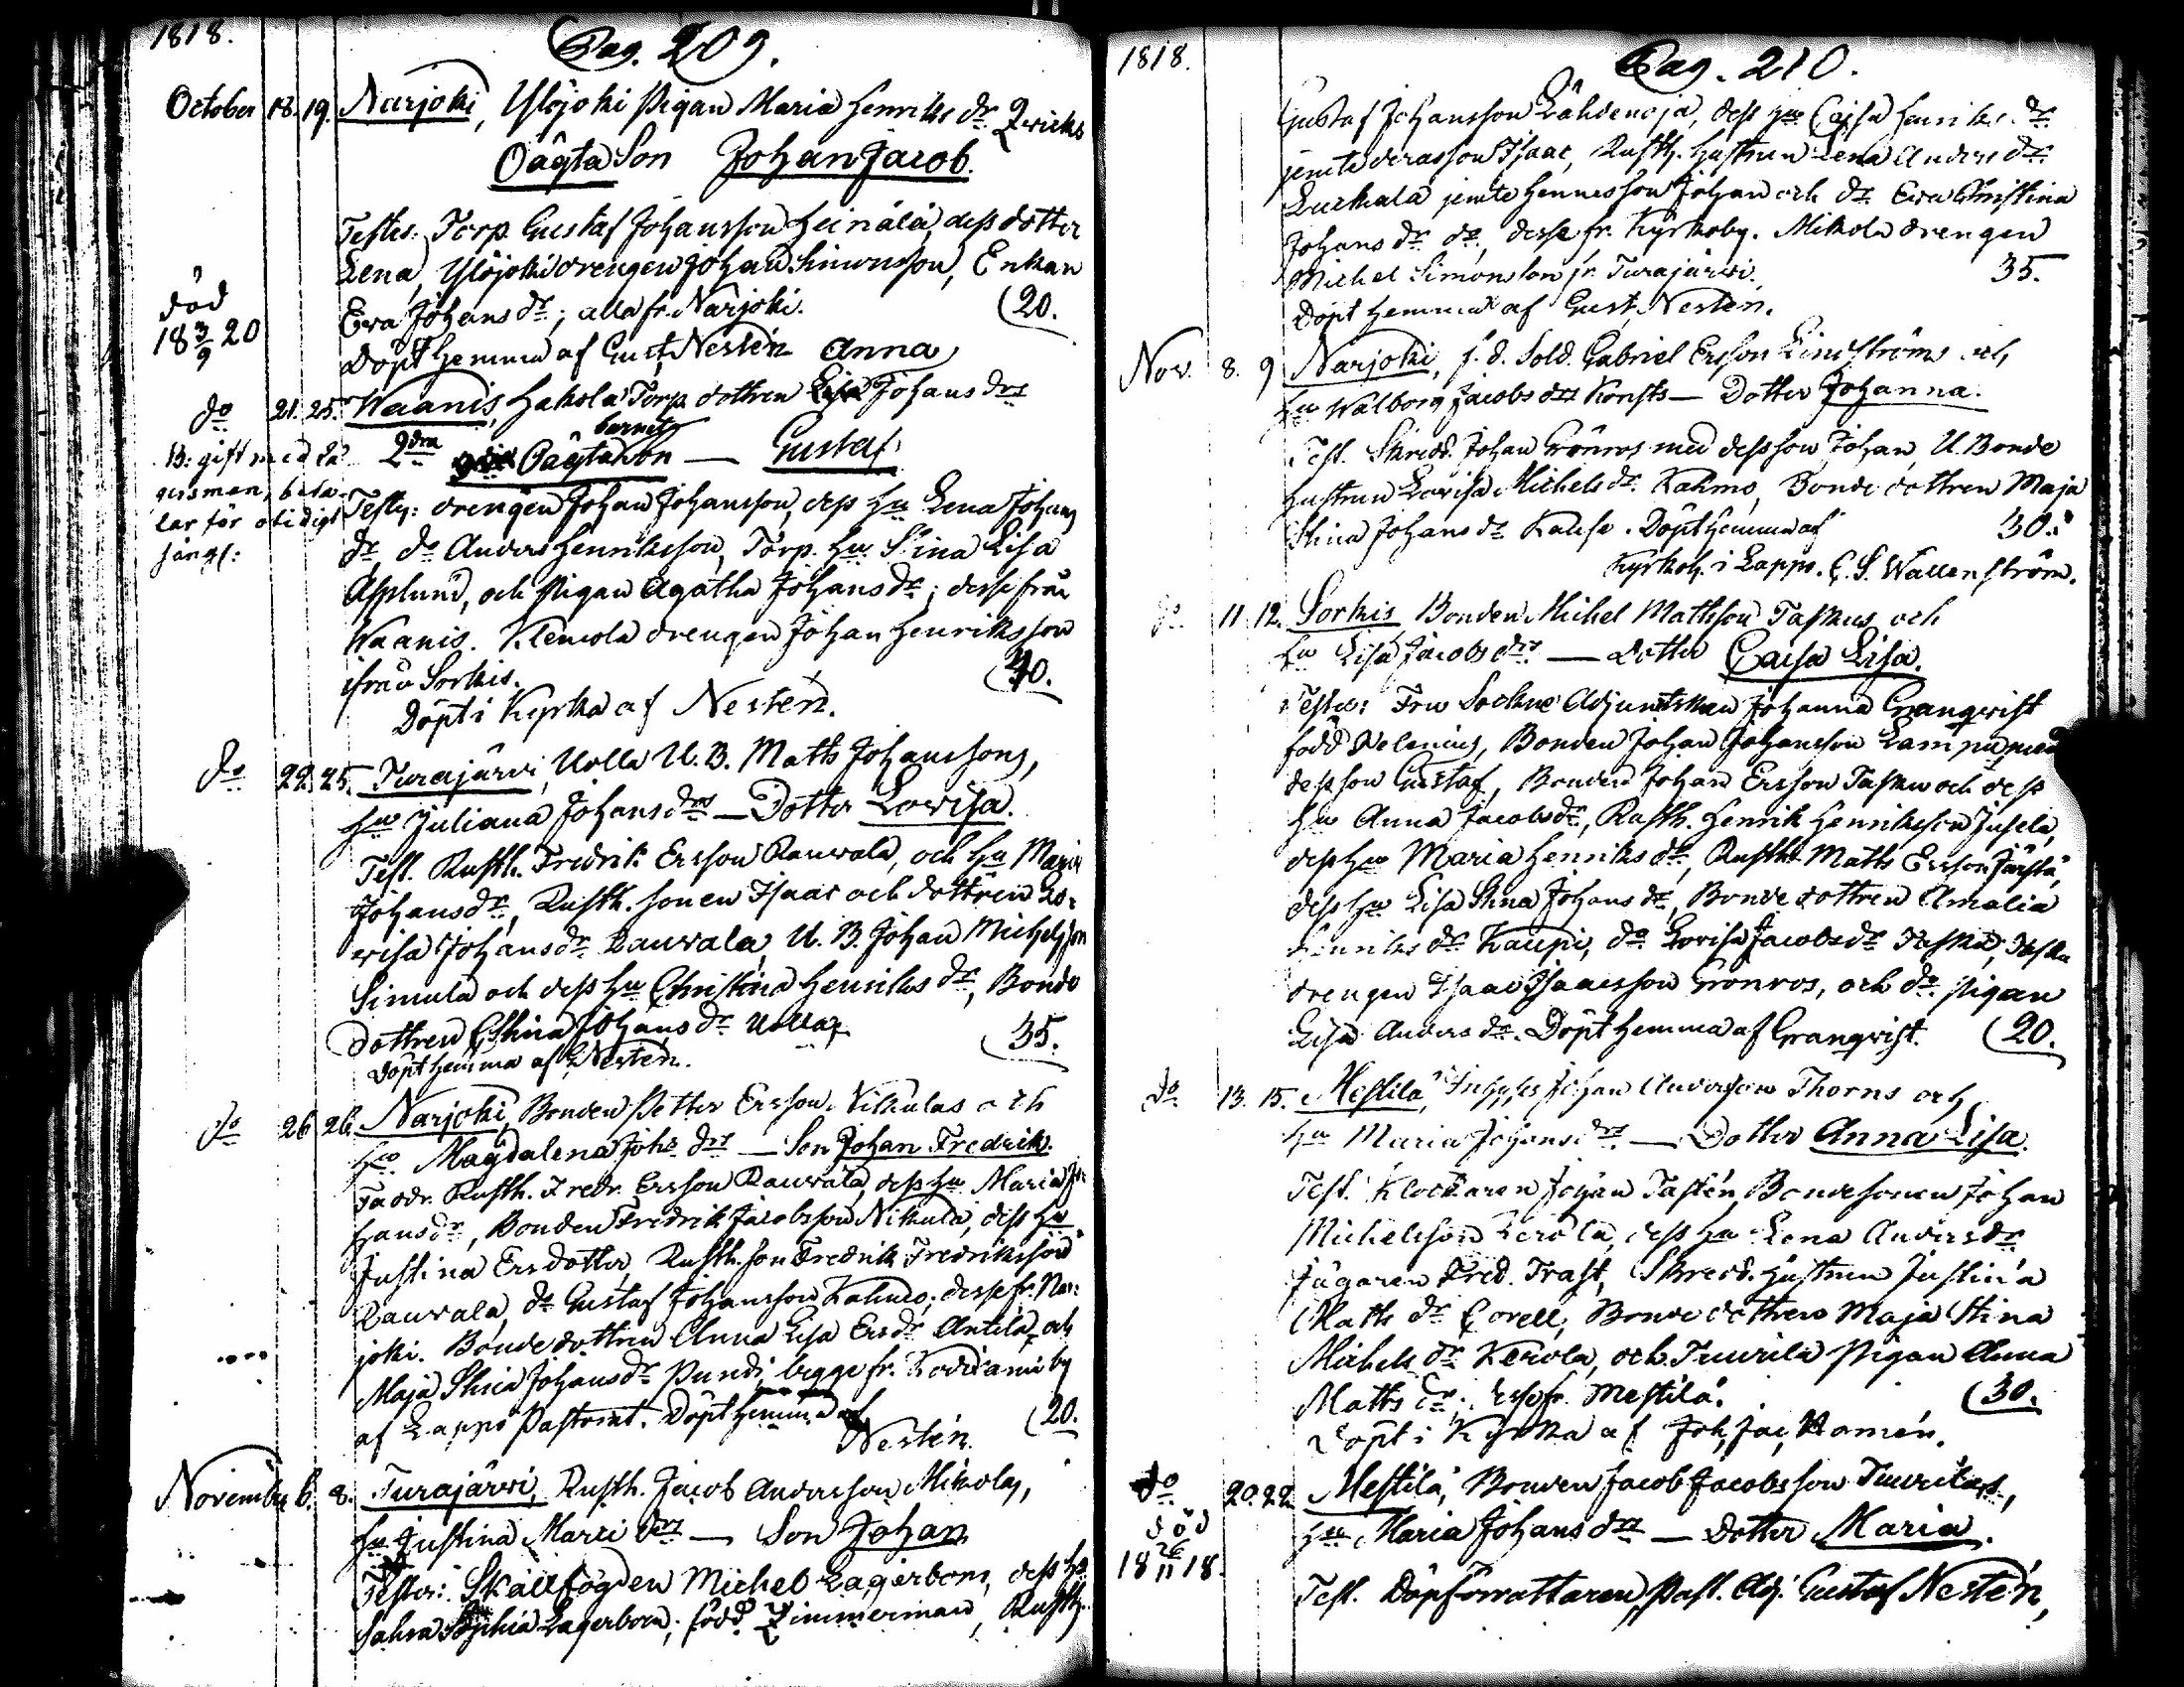 1818.
Pag. 209.
October 18. 19. Narjoki, Ylöjoki Pigan Maria Henriks dr Qvicks
Oägta Son Johan Jacob.
Testes. Torp. Gustaf Johansson Heinälä, dess dotter
Lena, Ylöjoki drengen Johan Simonsson, Enkan
Eva Johans dr; alla fr. Narjoki. 20.
död
18 3/9 20
Döpt hemma af Gust. Nestén
Anna
do 21. 25. Waanis, Hakola Torp. dottren Lisa Johans drs
barnet
2dra Oägta Son — Gustaf
gift med
Testes: drengen Johan Johansson, dess hu Lena Johans
lar för otidigt
dr do Anders Henriksson, Torp. hu Stina Lisa
sängl:
Asplund, och Pigan Agatha Johans dr; desse från
Waanis. Klemola drengen Johan Henriksson
ifrån Sorkis. 40.
Döpt i Kyrka af Nestén.
do 22. 25. Turajärvi, Uolla U. B. Maths Johanssons,
hu Juliana Johans drs — Dotter Lovisa.
Test. Rusth. Fredrik Ersson Rauvala, och hu Maria
Johans dr, Rusth. sonen Isaac och dottren Lo-
visa Johans dr Rauvala, U. B. Johan Michelsson
Simula och dess hu Christina Henriks dr, Bonde
dottren Stina Johans dr Uolla 35.
Döpt hemma af Nestén.
do 26 26. Narjoki, Bonden Petter Ersson Nikulas och
hu Magdalena Johs drs — Son Johan Fredrik.
Faddr. Rusth. Fredr. Ersson Rauvala, dess hu Maria Jo-
hans dr, Bonden Fredrik Jacobsson Nikula, dess hu
Justina Ersdotter, Rusth. son Fredrik Fredriksson
Rauvala, do Gustaf Johansson Kahmo; desse fr. Nar-
joki. Bonde dottren Anna Lisa Ers dr Antila, och
Maja Stina Johans dr Pundi, begge fr. by
af Lappo Pastorat. Döpt hemma af 20.
Nestén.
November 6. 8. Turajärvi, Rusth. Jacob Andersson Mikolas,
hu Justina Marci drs — Son Johan
Testes: Skallfogden Michel Lagerbom, dess hu
Sahra Sophia Lagerbom, född Zimmerman, Rusth.
1818.
Pag. 210.
Gustaf Johansson Lähdenoja, dess hu Cajsa Henriks dr
jemte deras son Isaac, Rusth. hustrun Lena Anders dr
jemte hennes son Johan och dr Eva Christina
Johans dr do, desse fr. Kyrkoby. Mikola drengen
Michel Simonsson fr. Turajärvi. 35.
Döpt hemma af Gust. Nestén.
Nov. 8. 9 Narjoki, f. d. Sold. Gabriel Ersson Lindströms och
hu Walborg Jacobs drs Konsts — Dotter Johanna.
Test. Skredd. Johan Grönroos med dess son Johan, U. Bonde
hustrun Lovisa Michels dr Kahmo, Bonde dottren Maja
Stina Johans dr Kause. Döpt hemma af 30.
Kyrkoh. i Lappo. C. S. Wallenström.
do 11. 12. Sorkis Bonden Michel Mathsson Taskus och
hu Lisa Jacobs drs — dotter Caisa Lisa.
Testes: Fru Sockne Adjunctskan Johanna Granqvist
född Helenius, Bonden Johan Johansson Lamppu, med
dess son Gustaf, Bonden Johan Ersson Tasku och dess
hu Anna Jacobs dr, Rusth. Henrik Henriksson Jusela,
dess hu Maria Henriks dr, Rusth. Maths Ersson
dess hu Lisa Stina Johans dr, Bonde dottren Amalia
Henriks dr Kaupi, do Lovisa Jacobs dr Tasku, Tasku
drengen Isaac Isaacsson Grönroos, och do pigan
Lisa Anders dr. Döpt hemma af Granqvist. 20.
do 13. 15. Mestilä, Johan Andersson Thorns och
hu Maria Johans drs — Dotter Anna Lisa.
Test. Klockaren Johan Tastén, Bondesonen Johan
Michelsson Kerola, dess hu Lena Anders dr
Jägaren Fred. Trast, Skredd. hustrun Justina
Maths dr Corell, Bonde dottren Maja Stina
Michels dr Kerola, och Tuurila Pigan Anna
Maths dr; desse fr. Mestilä. 30.
Döpt i Kyrka af Joh. Jac. Hamén.
do 20. 22 Mestilä, Bonden Jacob Jacobsson Tuurilas,
död
18 26/11 18.
hu Maria Johans drs — Dotter Maria.
Test. Döpförrättaren, Past. Adj. Gustaf Nestén,